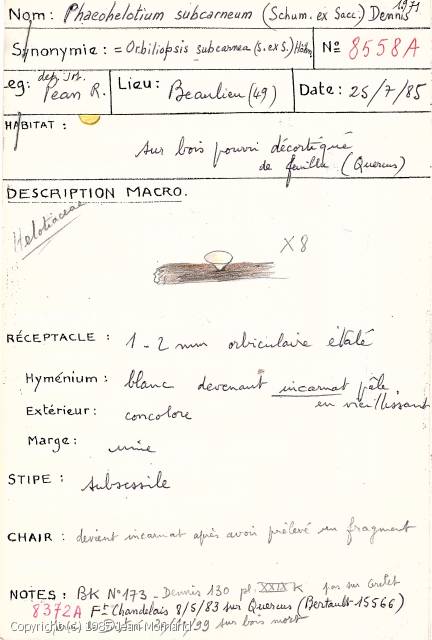 Nom: Phaeohelotium subcarneum (Schum. ex Sacc.) Dennis 1971
Synonymie: = Orbiliopsis subcarnea (S. ex S.) Höhn Nº 8558A
Leg: dep. Int. Pean R. Lieu: Beaulieu (49) Date: 25/7/85
HABITAT:
sur bois pourri décortiqué
de feuillu (Quercus)
DESCRIPTION MACRO.
Helotiaceae
X8
RÉCEPTACLE: 1-2 mm orbiculaire étalé
Hyménium: blanc devenant incarnat pâle,
en vieillissant
Extérieur: concolore
Marge: unie
STIPE: subsessile
CHAIR: devient incarnat après avoir prélevé un fragment
NOTES: BK Nº 173 - Dennis 130 pl. XXIX K pas sur Crchet
8372A Ft Chandelais 8/5/83 sur Quercus (Bertault 15566)
Copyright © 1985 Jean Mornand /99 sur bois mort